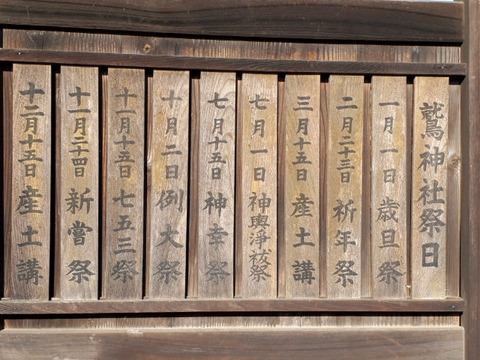 鷲神社祭日
一月一日歳旦祭
二月二十三日祈年祭
三月十五日産土講
七月一日神輿浄祓祭
七月十五日神幸祭
十月二日例大祭
十一月十五日七五三祭
十一月二十四日新嘗祭
十二月十五日産土講